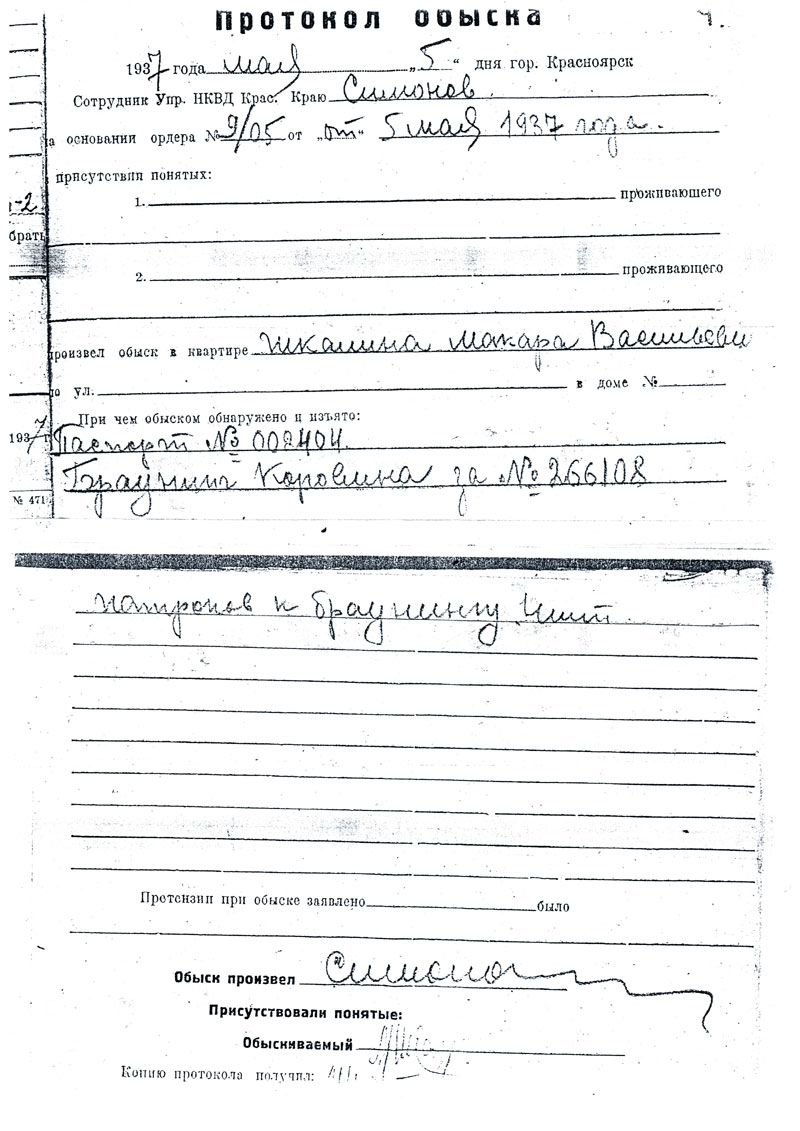 Протокол обыска
1937 года мая „5“ дня гор. Красноярск
Сотрудник Упр. НКВД Крас. Краю Симонов.
а основании ордера № 9/05 от „от“ 5 мая 1937 года.
присутствии понятых:
1. проживающего
2. проживающего
произвел обыск в квартире Шкалина Макара Васильеви
по ул. в доме №
При чем обыском обнаружено и изъято:
Паспорт № 002404
Браунинг Коровина за № 266108
-2
брать
1937 г
№ 471
патронов к браунингу шт
Претензии при обыске заявлено было
Обыск произвел Симонов
Присутствовали понятые:
Обыскиваемый
Копию протокола получил: